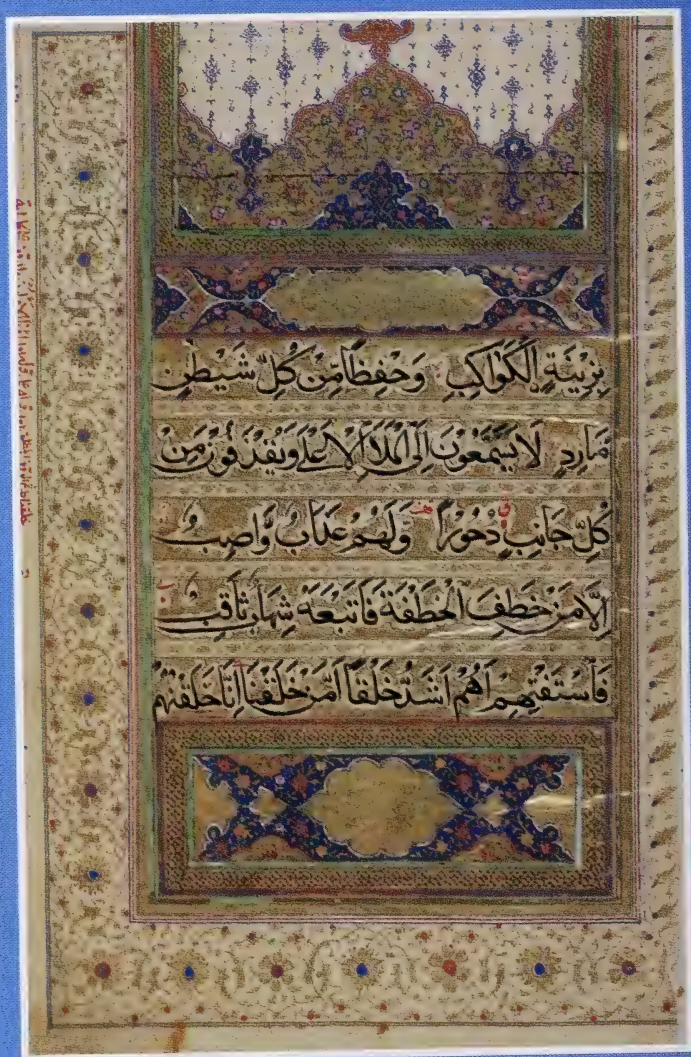 بِزِينَةٍ الْكَوَاكِبِ وَحِفْظًا مِّن كُلِّ شَيْطٰنٍ
مَّارِدٍ لَا يَسَّمَّعُونَ اِلَى الْمَلَاِ الْاَعْلٰى وَيُقْذَفُونَ مِن
كُلِّ جَانِبٍ دُحُورًا وَلَهُمْ عَذَابٌ وَّاصِبٌ
اِلَّا مَنْ خَطِفَ الْخَطْفَةَ فَاَتْبَعَهُ شِهَابٌ ثَاقِبٌ
فَاسْتَفْتِهِمْ اَهُمْ اَشَدُّ خَلْقًا اَمْ مَّنْ خَلَقْنَا اِنَّا خَلَقْنٰهُمْ